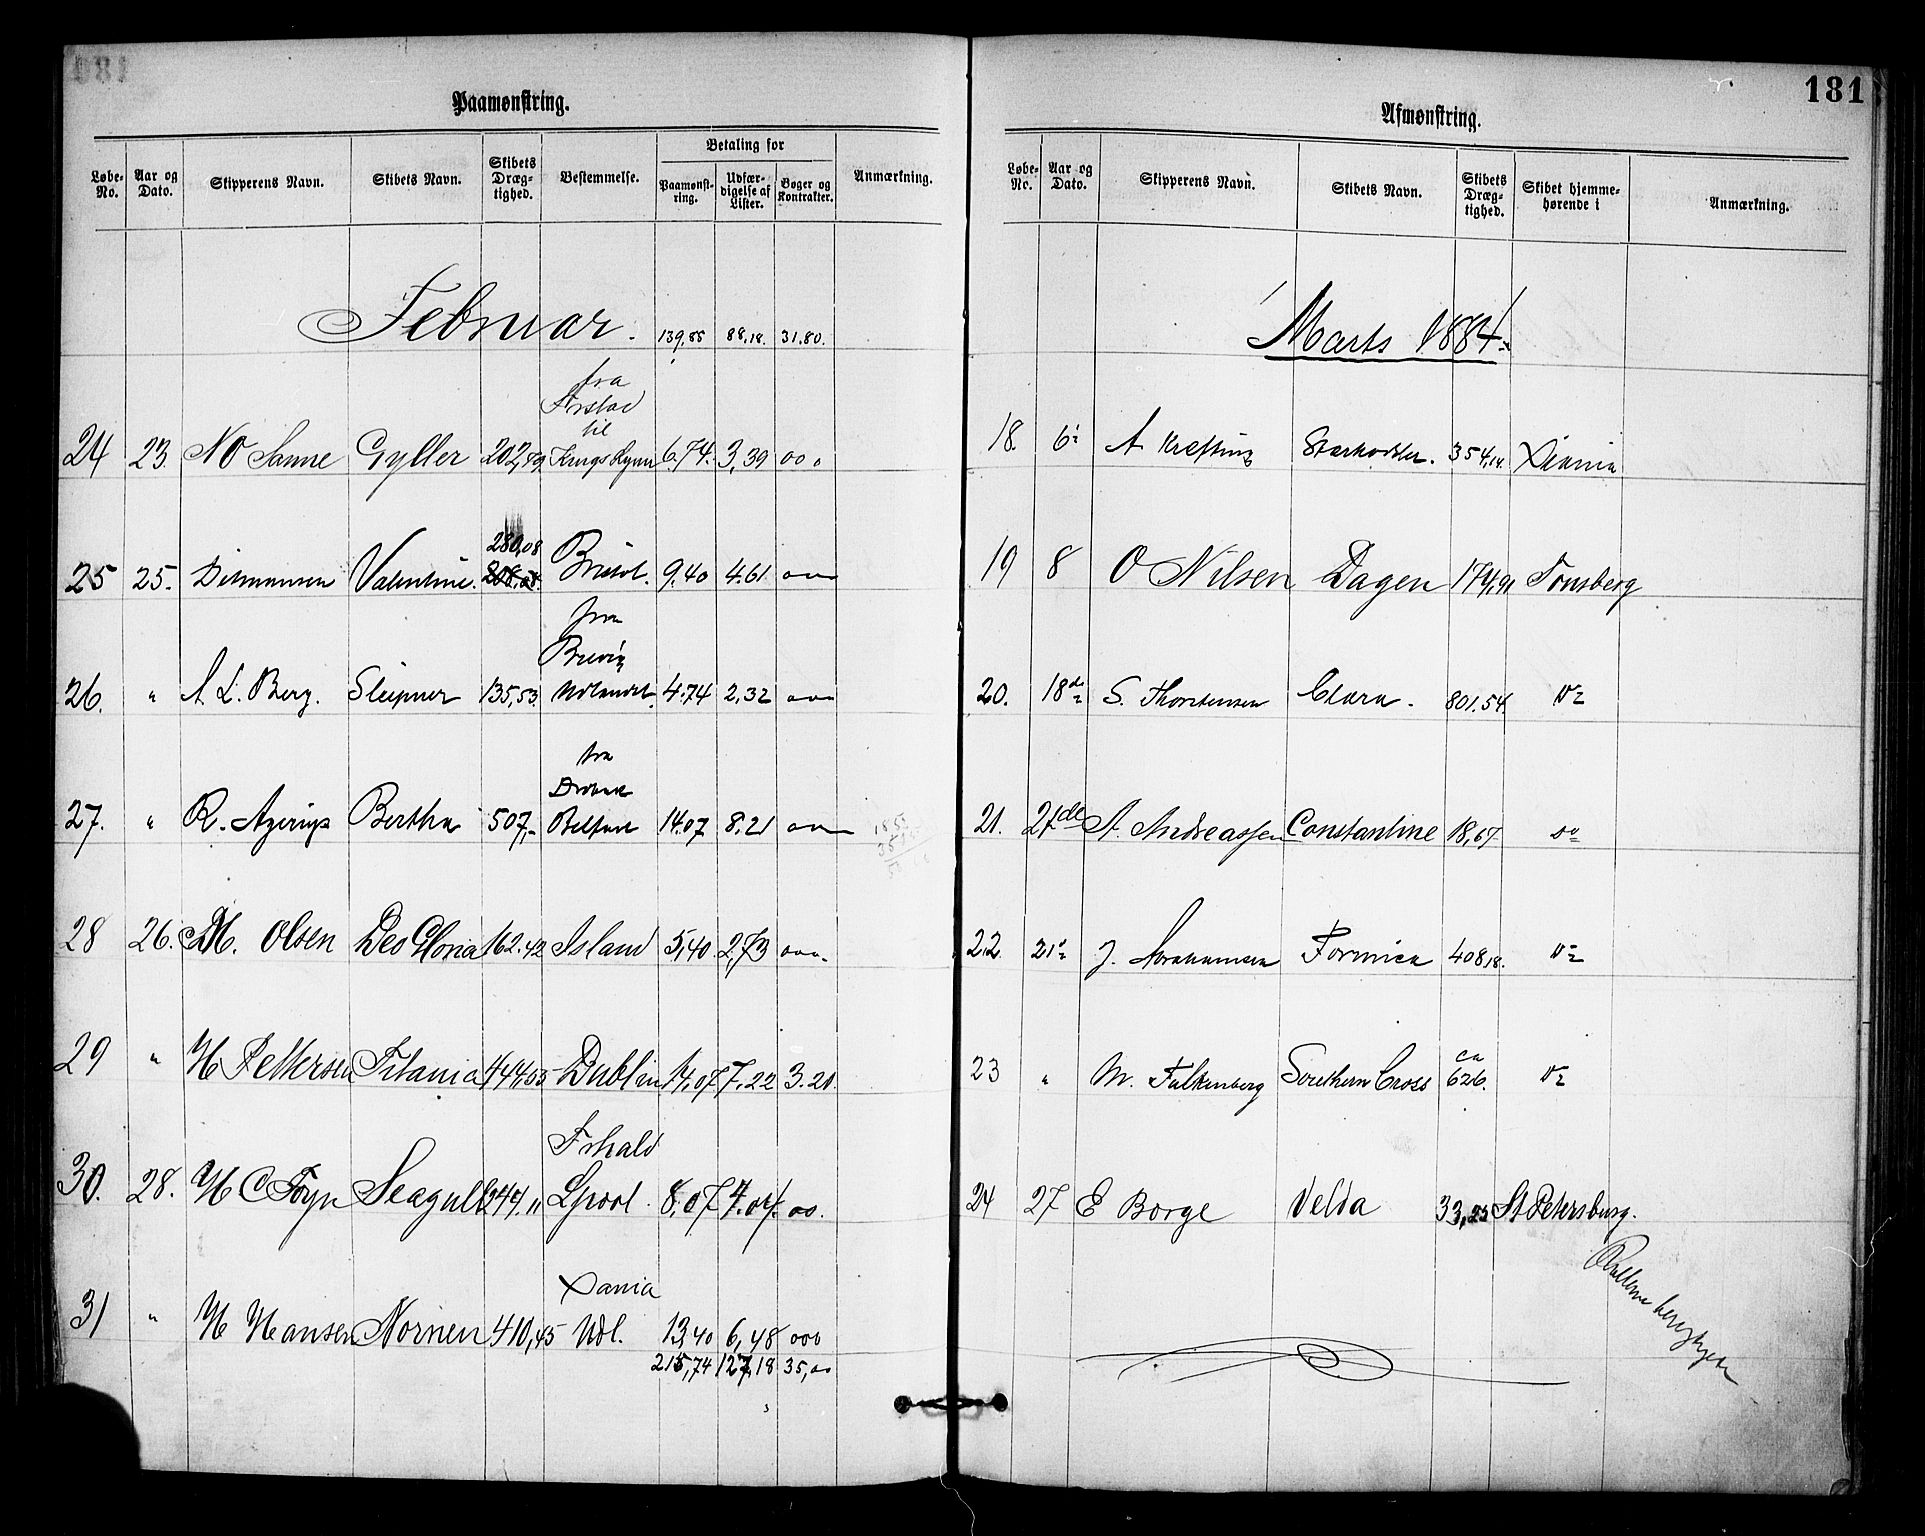 181
Paamønstring.
Løbe-No. Aar og Dato. Skipperens Navn. Skibets Navn. Skibets Dræg-tighed. Bestemmelse. Betaling for Paamønst-ring. Udfær-digelse af Lister. Bøger og Kontrakter. Anmærkning.
Februar. 139,85 88,18. 31.80.
fra
Frstad
til
24 23. NO Sanne Gyller 202,89 Kings Lynn 6.74. 3,39 ooo
280,08
25 25. Ditmansen Valentine. Bristol. 9,40 4.61 ooo
fra
Brevig
26. " A. L. Berg. Sleipner 135,53. Udlandet. 4.74 2,32 ooo
fra
Drobak
27. " R. Agerup Bertha 507,- Belfast 14.07 8.21 ooo
28 26. M. Olsen Deo Gloria 162.42 Island 5,40 2,73 ooo.
29 " H Pettersen Titania 444,05 Dublin 14,07 7.22 3.20
Frhald
30. 28. H C Foyn Seagull 244." Lpool. 8,07 4.04. oo.
Xania
31 " H Hansen Nornen 410,45 Udl. 13,40 6,48 ooo
215,74 127,18 35,oo
Afmønstring.
Løbe-No. Aar og Dato. Skipperens Navn. Skibets Navn. Skibets Dræg-tighed. Skibet hjemme-hørende i Anmærkning.
Marts 1884.
18. 6 A Kræfting Starkodder. 354,14. Xiania
19 8 O Nilsen Dagen 174,91 Tønsberg
20. 18de S. Thorstensen Clara. 801.54. Do
21. 21de A. Andreassen Constantine 18,67 do
22. 21 J. Abrahamsen Formica 408,18. Do
ca
23 " M. Falkenberg Southern Cross 626. Do
24 27 E Borge Velda 33,25 St Petersburg.